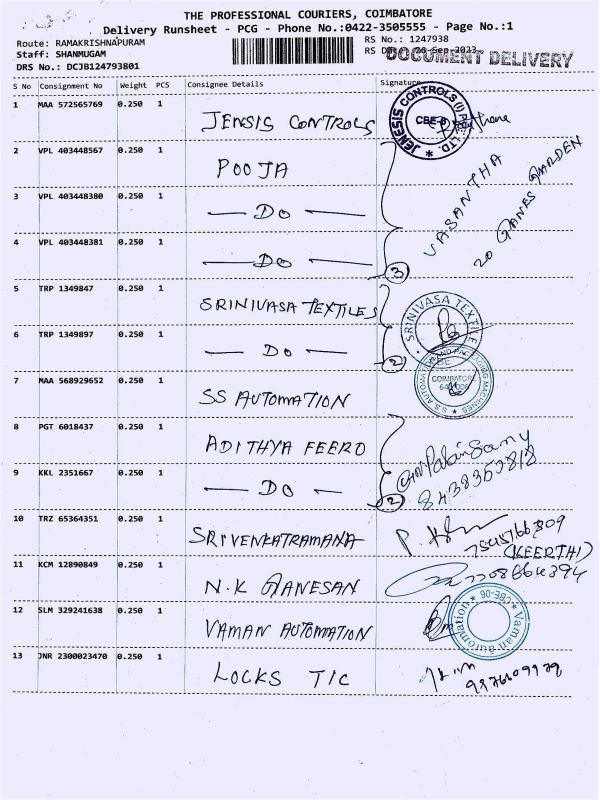 THE PROFESSIONAL COURIERS, COIMBATORE
Delivery Runsheet - PCG - Phone No.:0422-3505555 - Page No.:1
Route: RAMAKRISHNAPURAM
Staff: SHANMUGAM
DRS No.: DCJB124793801
RS No.: 1247938
RS 26-Sep-2023
DOCUMENT DELIVERY
S No Consignment No Weight PCS Consignee Details Signature
1 MAA 572565769 0.250 1 JENSIS CONTROLS
JENESIS CONTROLS (I) LTD. CBE-6
2 VPL 403448567 0.250 1 POOJA
3 VPL 403448380 0.250 1 — DO —
4 VPL 403448381 0.250 1 — DO — 3
VASANTHA
20 GANES GARDEN
5 TRP 1349847 0.250 1 SRINIVASA TEXTILES
SRINIVASA TEXTILE
6 TRP 1349897 0.250 1 — DO — 2
7 MAA 568929652 0.250 1 SS AUTOMATION
S.S. AUTOMATION AND PACKAGING MACHINES COIMBATORE 641 006
8 PGT 6018437 0.250 1 ADITHYA FEERO
9 KKL 2351667 0.250 1 — DO — 2
8438353818
10 TRZ 65364351 0.250 1 SRIVENKATRAMANA
(KEERTHI)
11 KCM 12890849 0.250 1 N.K GANESAN
12 SLM 329241638 0.250 1 VAMAN AUTOMATION
Vaman automation CBE-06
13 JNR 2300023470 0.250 1 LOCKS TIC